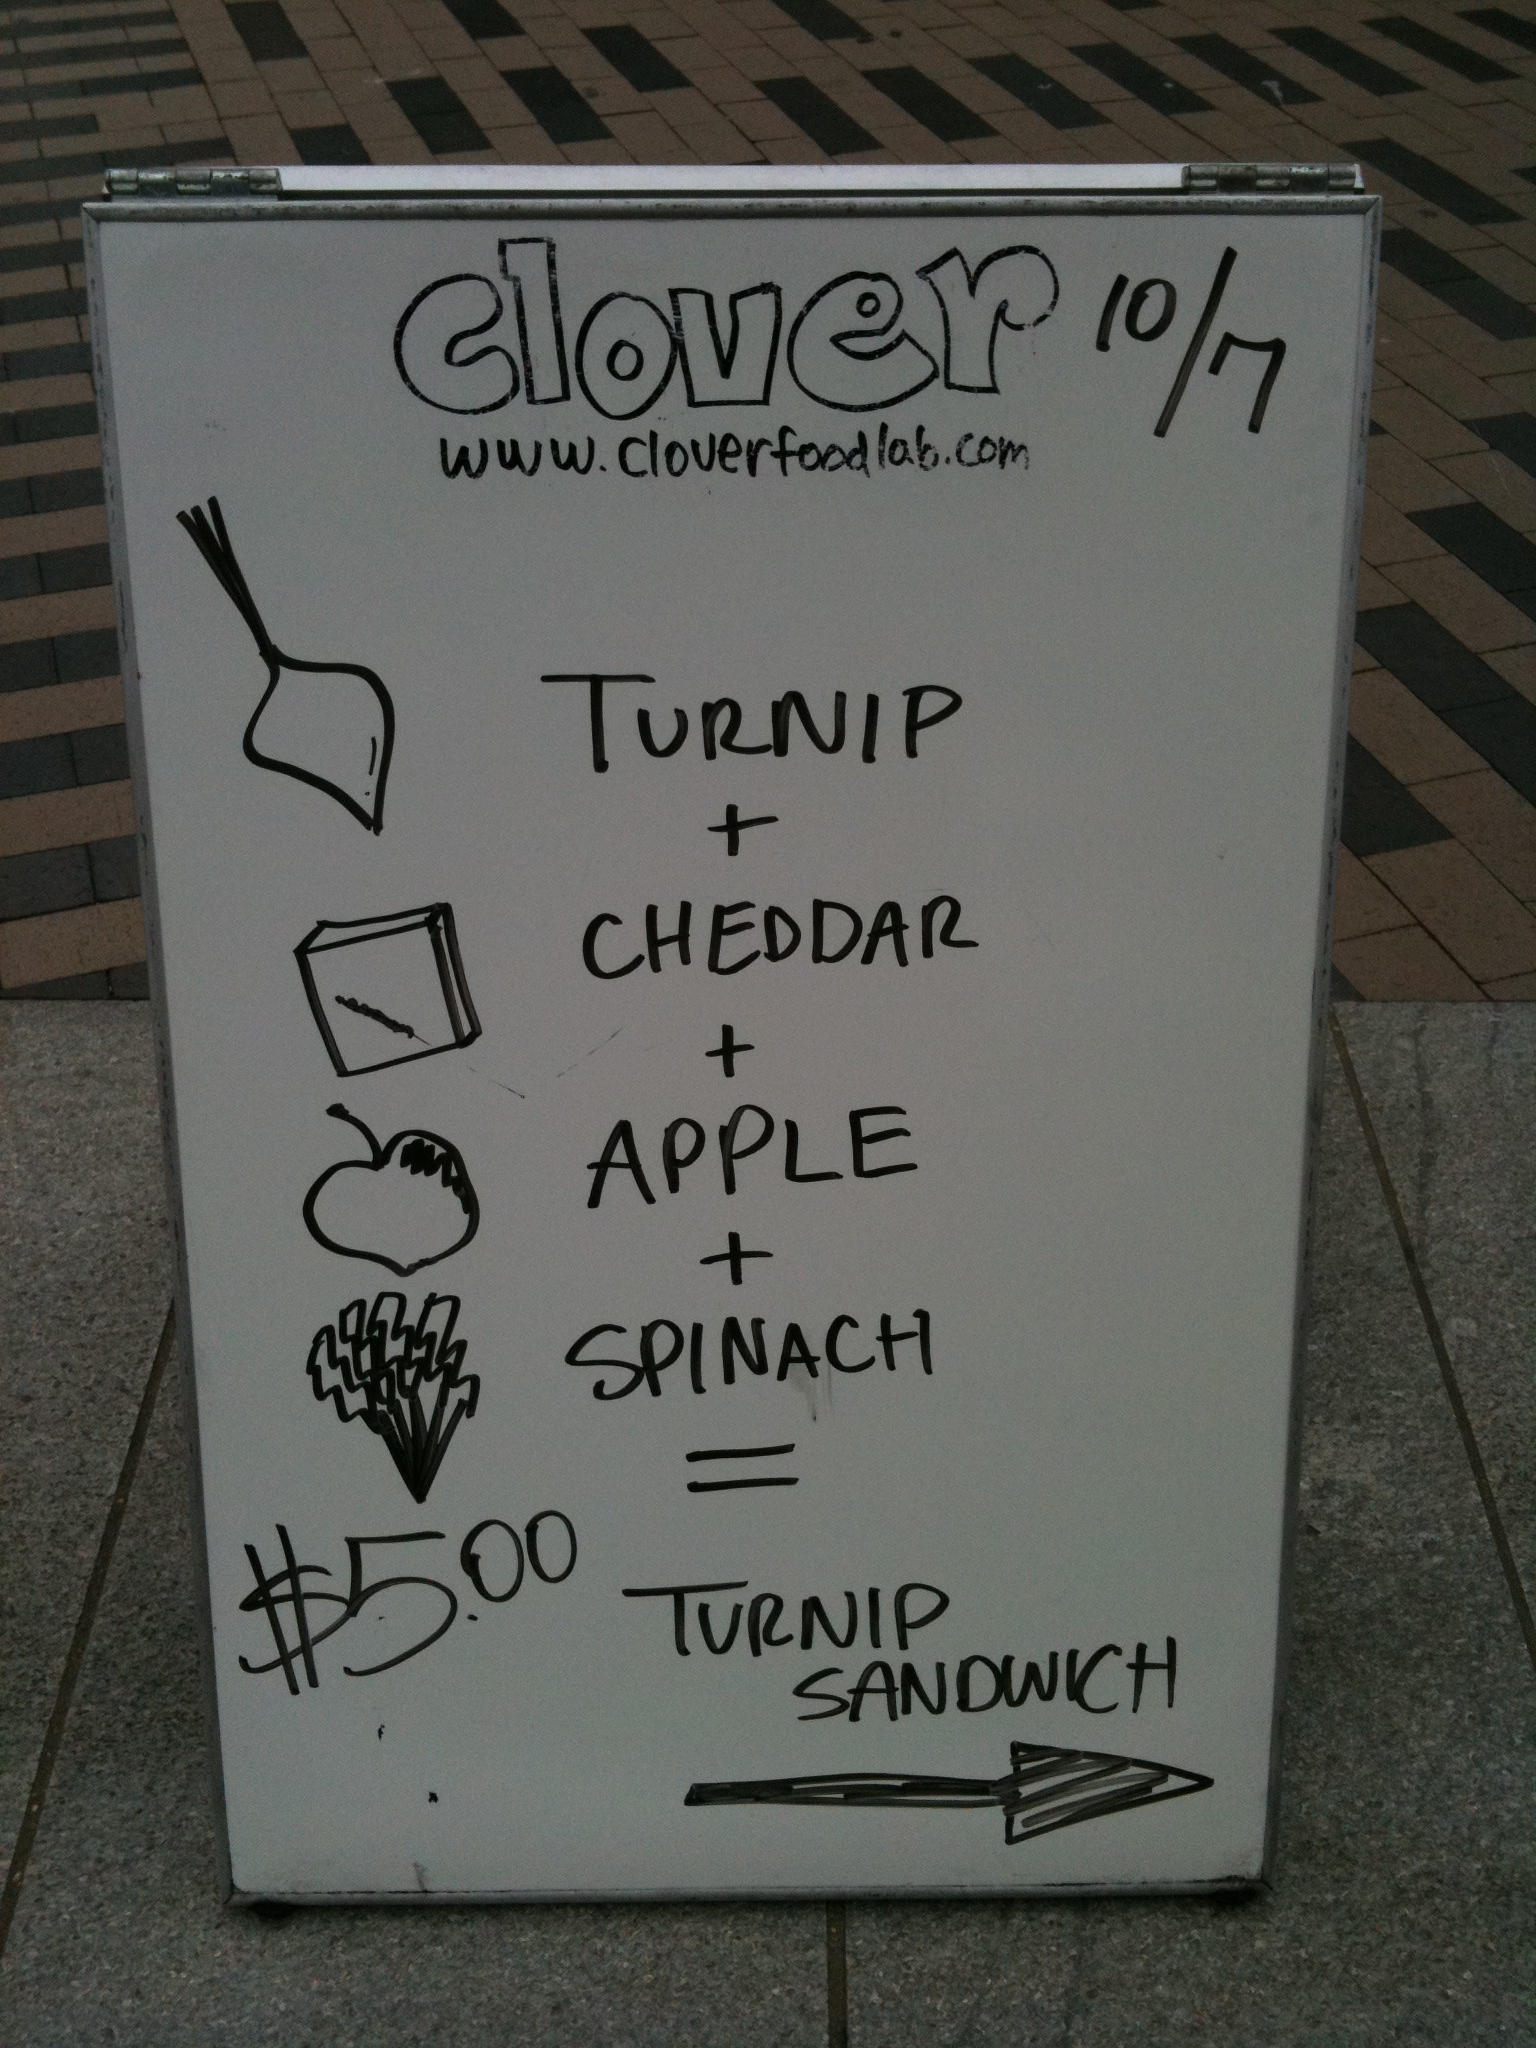 clover 10/7
www.cloverfoodlab.com
TURNIP
+
CHEDDAR
+
APPLE
+
SPINACH
=
$5.00
TURNIP
SANDWICH